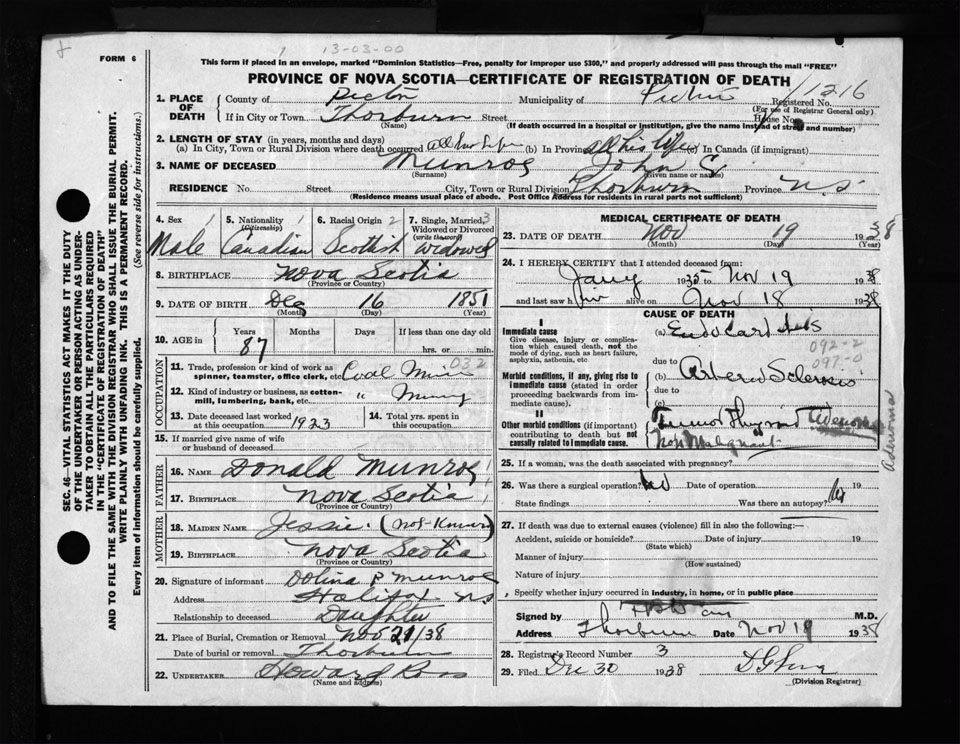 13-03-00
FORM 6
This form if placed in an envelope, marked "Dominion Statistics—Free, penalty for improper use $300," and properly addressed will pass through the mail "FREE"
PROVINCE OF NOVA SCOTIA—CERTIFICATE OF REGISTRATION OF DEATH
1. PLACE OF DEATH
County of Pictou Municipality of Pictou Registered No. 11216
(For use of Registrar General only)
If in City or Town Thorburn Street House No.
(Name) (If death occurred in a hospital or institution, give the name instead of street and number)
2. LENGTH OF STAY (in years, months and days)
(a) In City, Town or Rural Division where death occurred All his life (b) In Province All his life (c) In Canada (if immigrant)
3. NAME OF DECEASED Munroe John
(Surname) (Given name or names)
RESIDENCE No. Street City, Town or Rural Division Thorburn Province N.S.
(Residence means usual place of abode. Post Office Address for residents in rural parts not sufficient)
4. Sex 1
Male
5. Nationality 1
(Citizenship)
Canadian
6. Racial Origin 2
Scottish
7. Single, Married, 3
Widowed or Divorced
(write the word)
widowed
8. BIRTHPLACE Nova Scotia
(Province or Country)
9. DATE OF BIRTH Dec 16 1851
(Month) (Day) (Year)
10. AGE in Years Months Days If less than one day old
87 hrs. or min.
OCCUPATION
11. Trade, profession or kind of work as spinner, teamster, office clerk, etc. Coal Miner 032
12. Kind of industry or business, as cotton-mill, lumbering, bank, etc. " Mining
13. Date deceased last worked at this occupation 1923
14. Total yrs. spent in this occupation
15. If married give name of wife or husband of deceased
FATHER
16. NAME Donald Munroe
17. BIRTHPLACE Nova Scotia
(Province or Country)
MOTHER
18. MAIDEN NAME Jessie (Not Known)
19. BIRTHPLACE Nova Scotia
(Province or Country)
20. Signature of informant Dolina P Munroe
Address Halifax N S
Relationship to deceased Daughter
21. Place of Burial, Cremation or Removal Nov 21/38
Date of burial or removal Thorburn
22. UNDERTAKER Howard Ross
(Name and address)
MEDICAL CERTIFICATE OF DEATH
23. DATE OF DEATH Nov 19 1938
(Month) (Day) (Year)
24. I HEREBY CERTIFY that I attended deceased from:
Jany 1935 to Nov 19 1938
and last saw him alive on Nov 18 1938
CAUSE OF DEATH
I
Immediate cause
Give disease, injury or complication which caused death, not the mode of dying, such as heart failure, asphyxia, asthenia, etc
(a) Endocarditis
092-2
097-0
due to
Morbid conditions, if any, giving rise to immediate cause (stated in order proceeding backwards from immediate cause).
(b) Arterio Sclerosis
due to
(c)
II
Other morbid conditions (if important) contributing to death but not causally related to immediate cause.
Tumor Thyroid
Non Malignant
Adenoma
25. If a woman, was the death associated with pregnancy?
26. Was there a surgical operation? No Date of operation 19
State findings Was there an autopsy? No
27. If death was due to external causes (violence) fill in also the following:—
Accident, suicide or homicide? Date of injury 19
(State which)
Manner of injury
(How sustained)
Nature of injury
Specify whether injury occurred in industry, in home, or in public place
Signed by M.D.
Address Thorburn Date Nov 19 1938
28. Registrar's Record Number 3
29. Filed Dec 30 1938
(Division Registrar)
SEC. 46—VITAL STATISTICS ACT MAKES IT THE DUTY OF THE UNDERTAKER OR PERSON ACTING AS UNDERTAKER TO OBTAIN ALL THE PARTICULARS REQUIRED IN THE "CERTIFICATE OF REGISTRATION OF DEATH" AND TO FILE THE SAME WITH THE DIVISION REGISTRAR WHO SHALL ISSUE THE BURIAL PERMIT.
WRITE PLAINLY WITH UNFADING INK. THIS IS A PERMANENT RECORD.
Every item of information should be carefully supplied. (See reverse side for instructions.)